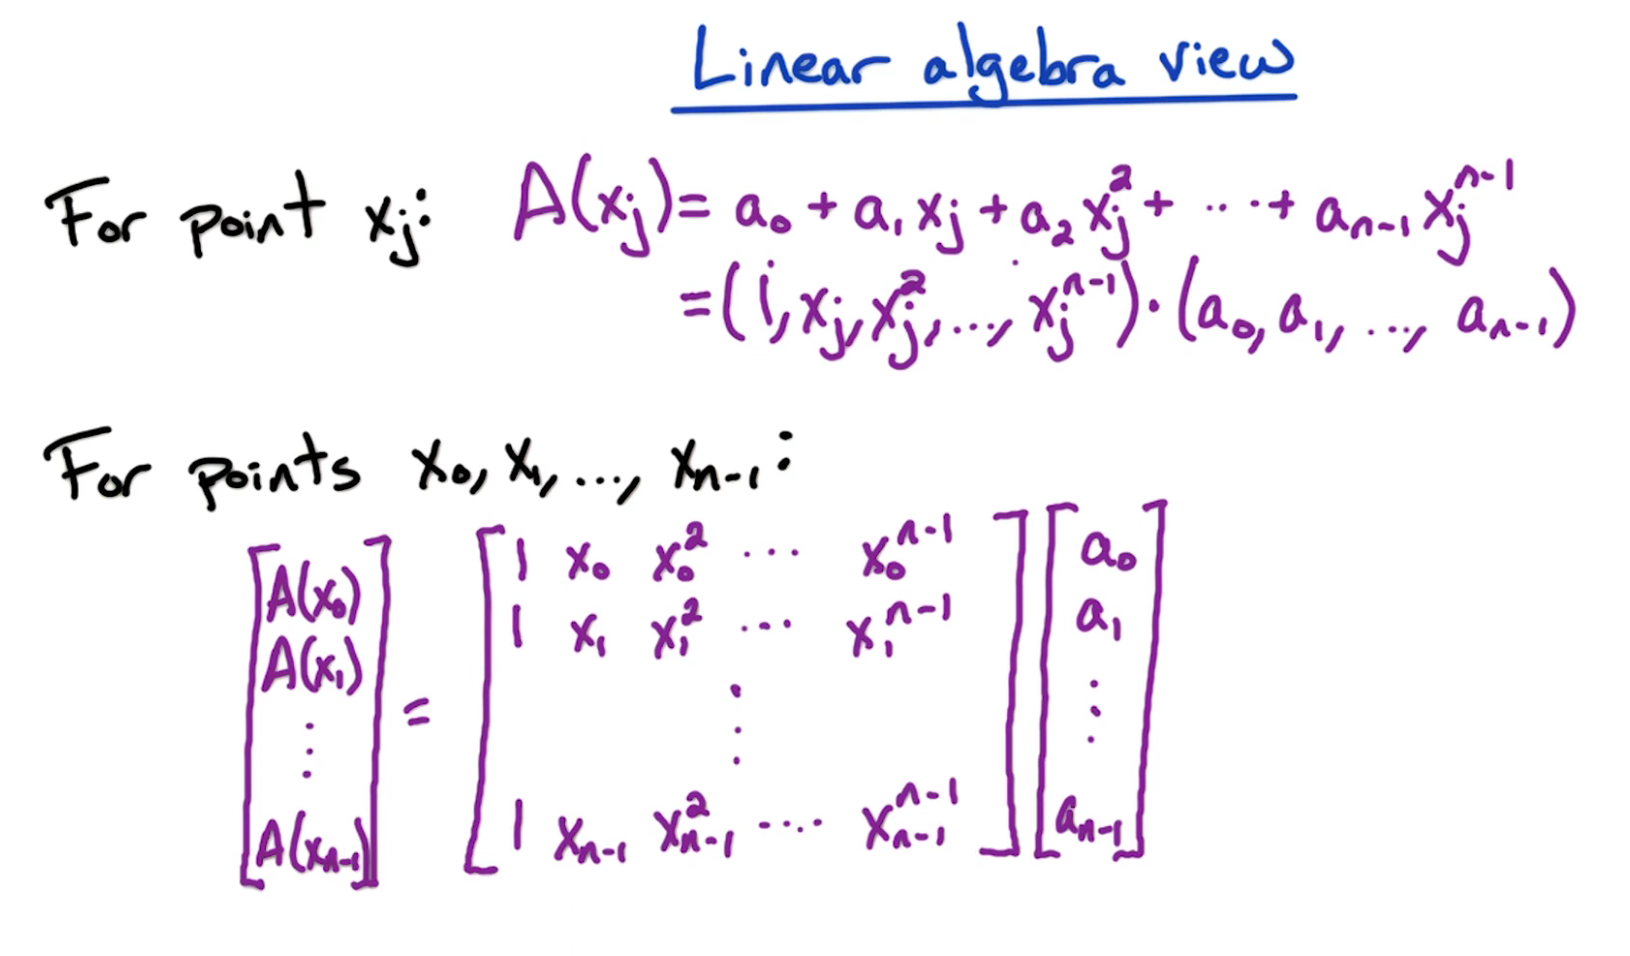 Linear algebra view
For point xⱼ: A(xⱼ) = a₀ + a₁xⱼ + a₂xⱼ² + ··· + aₙ₋₁xⱼⁿ⁻¹
= (1, xⱼ, xⱼ², ..., xⱼⁿ⁻¹) · (a₀, a₁, ..., aₙ₋₁)
For points x₀, x₁, ..., xₙ₋₁:
[A(x₀)] [1 x₀ x₀² ··· x₀ⁿ⁻¹] [a₀]
[A(x₁)] [1 x₁ x₁² ··· x₁ⁿ⁻¹] [a₁]
⋮ = ⋮ ⋮
[A(xₙ₋₁)] [1 xₙ₋₁ xₙ₋₁² ···· xₙ₋₁ⁿ⁻¹] [aₙ₋₁]